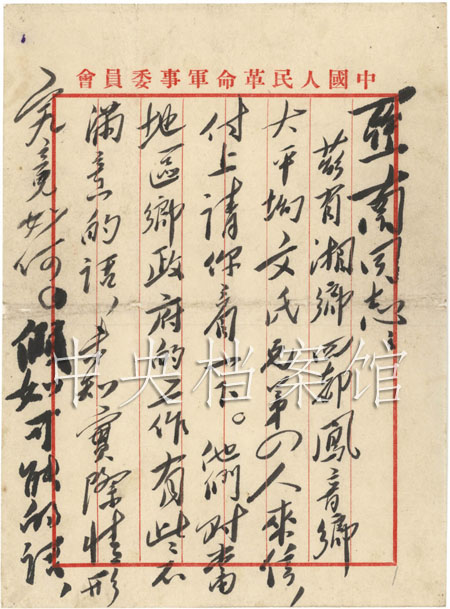 中國人民革命軍事委員會
亞南同志：
茲有湘鄉四都鳳音鄉
大平坳文氏兄弟四人來信，
付上請你看一下。他們对當
地區鄉政府的工作有些不
滿意的話，未知實際情形
究竟如何。假如可能的話，
中央档案馆